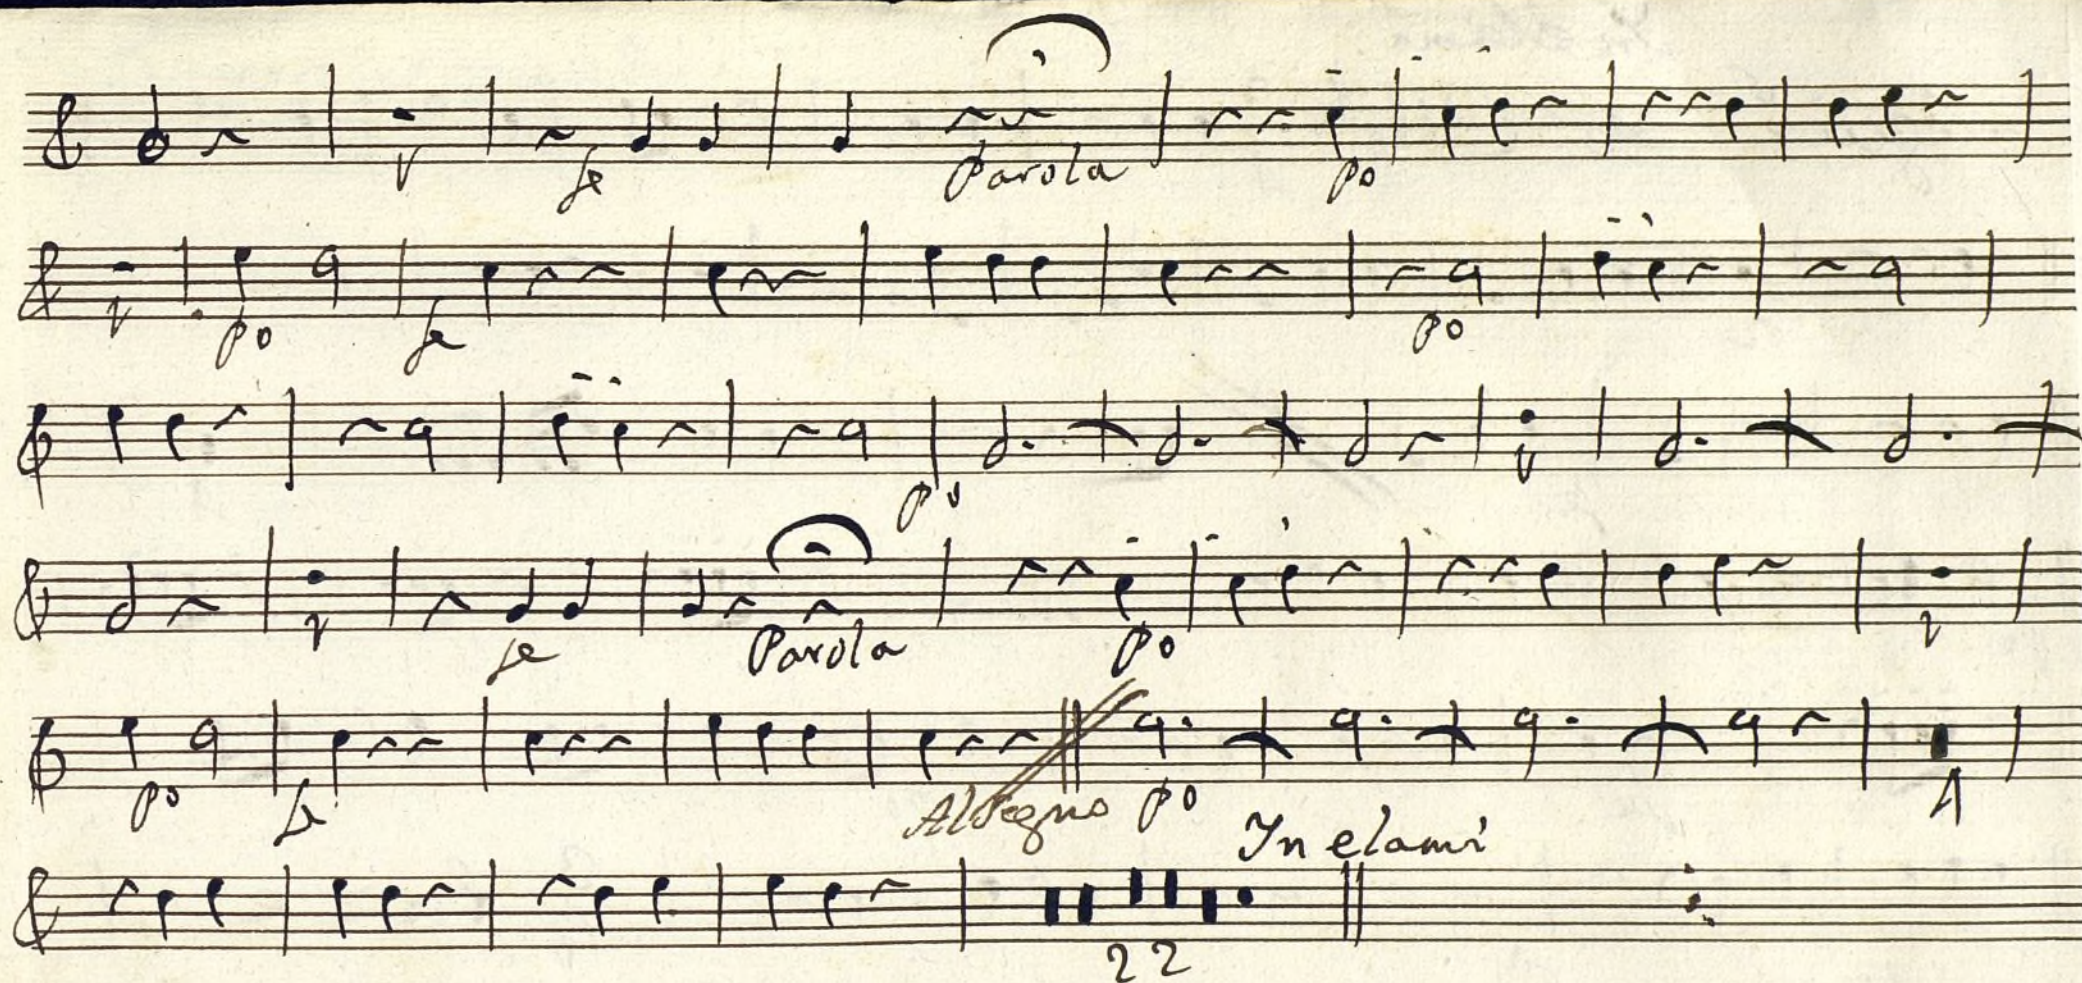 fe Parola po
po fe po
po
fe Parola po
po fe Al Segno po
In elami
22